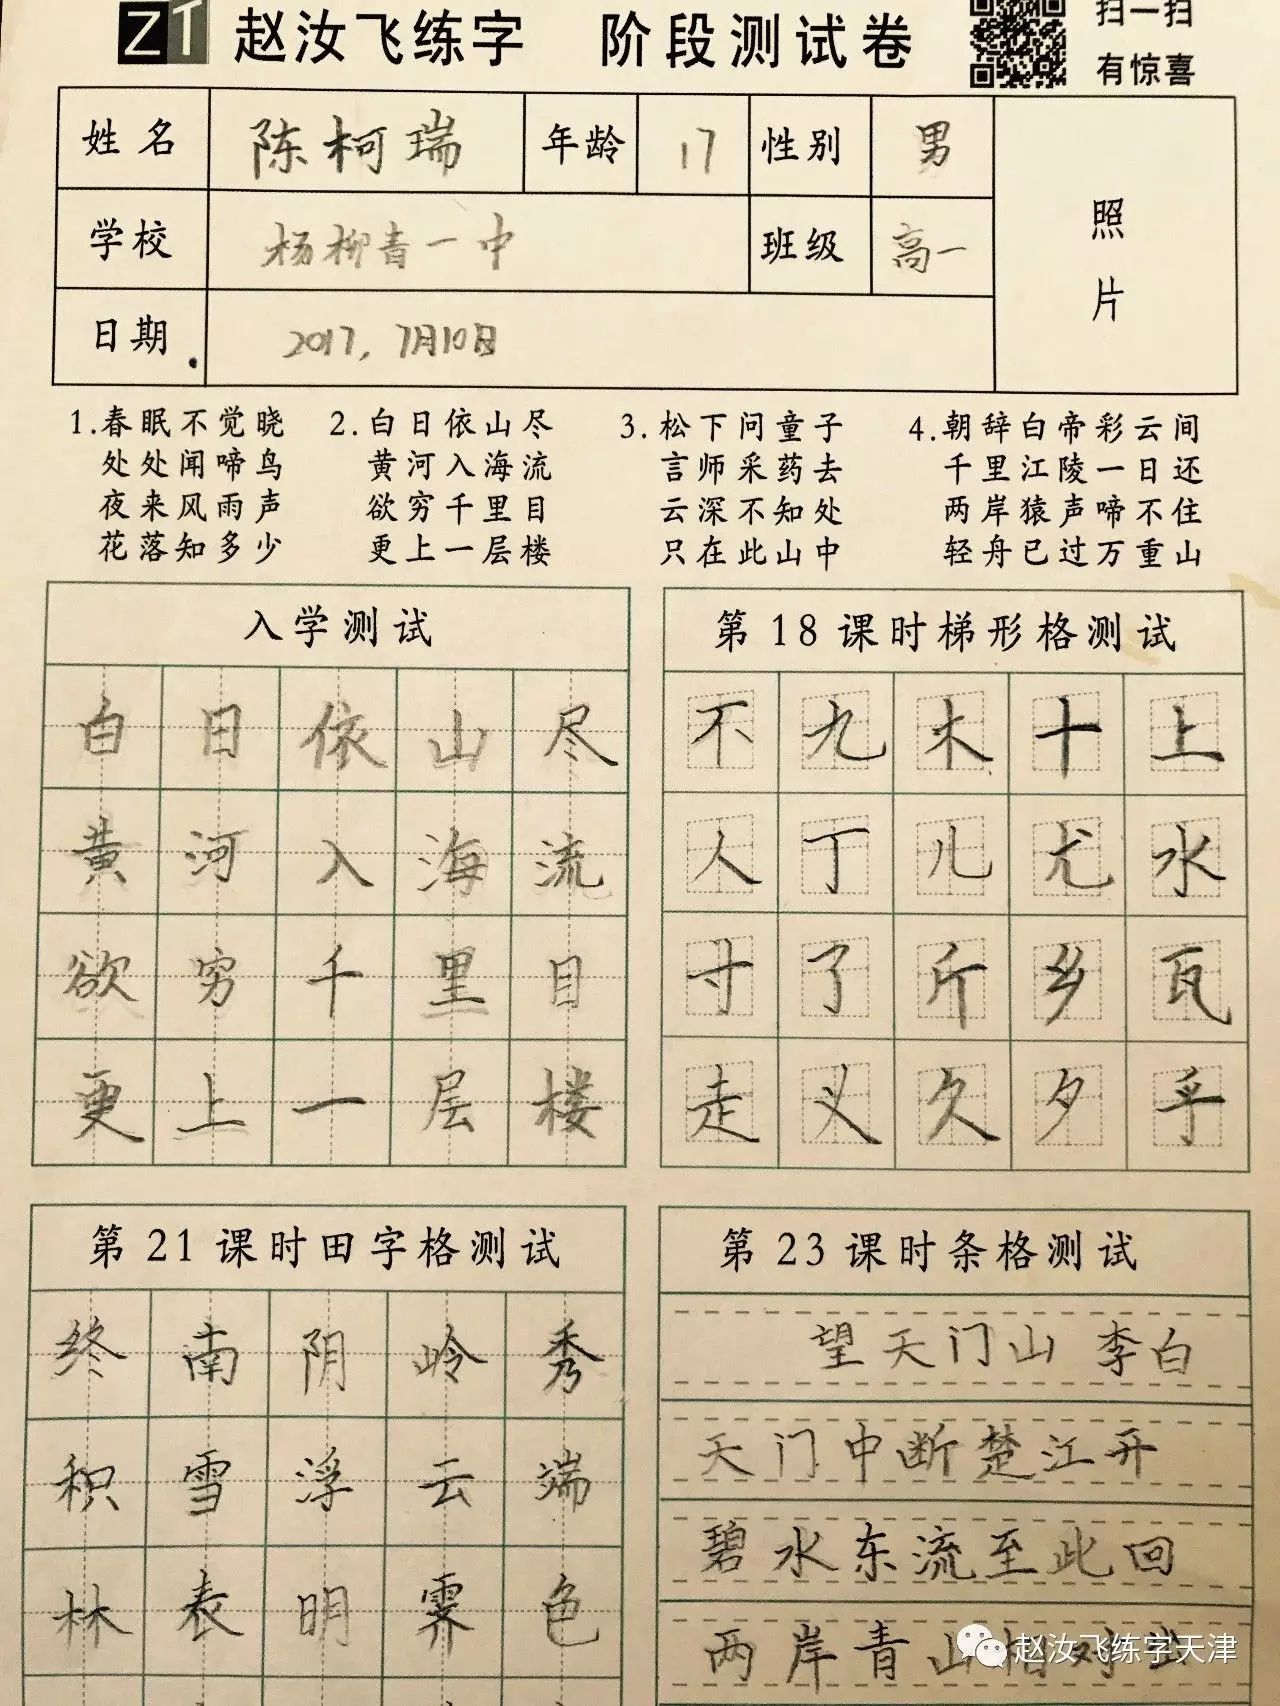 ZT 赵汝飞练字 阶段测试卷 扫一扫
有惊喜
姓名 陈柯瑞 年龄 17 性别 男 照片
学校 杨柳青一中 班级 高一
日期 2017，7月10日
1.春眠不觉晓
处处闻啼鸟
夜来风雨声
花落知多少
2.白日依山尽
黄河入海流
欲穷千里目
更上一层楼
3.松下问童子
言师采药去
云深不知处
只在此山中
4.朝辞白帝彩云间
千里江陵一日还
两岸猿声啼不住
轻舟已过万重山
入学测试
白日依山尽
黄河入海流
欲穷千里目
更上一层楼
第18课时梯形格测试
不九木十上
人丁儿尤水
寸了斤乡瓦
走义久夕乎
第21课时田字格测试
终南阴岭秀
积雪浮云端
林表明霁色
第23课时条格测试
望天门山 李白
天门中断楚江开
碧水东流至此回
两岸青山相对出
赵汝飞练字天津